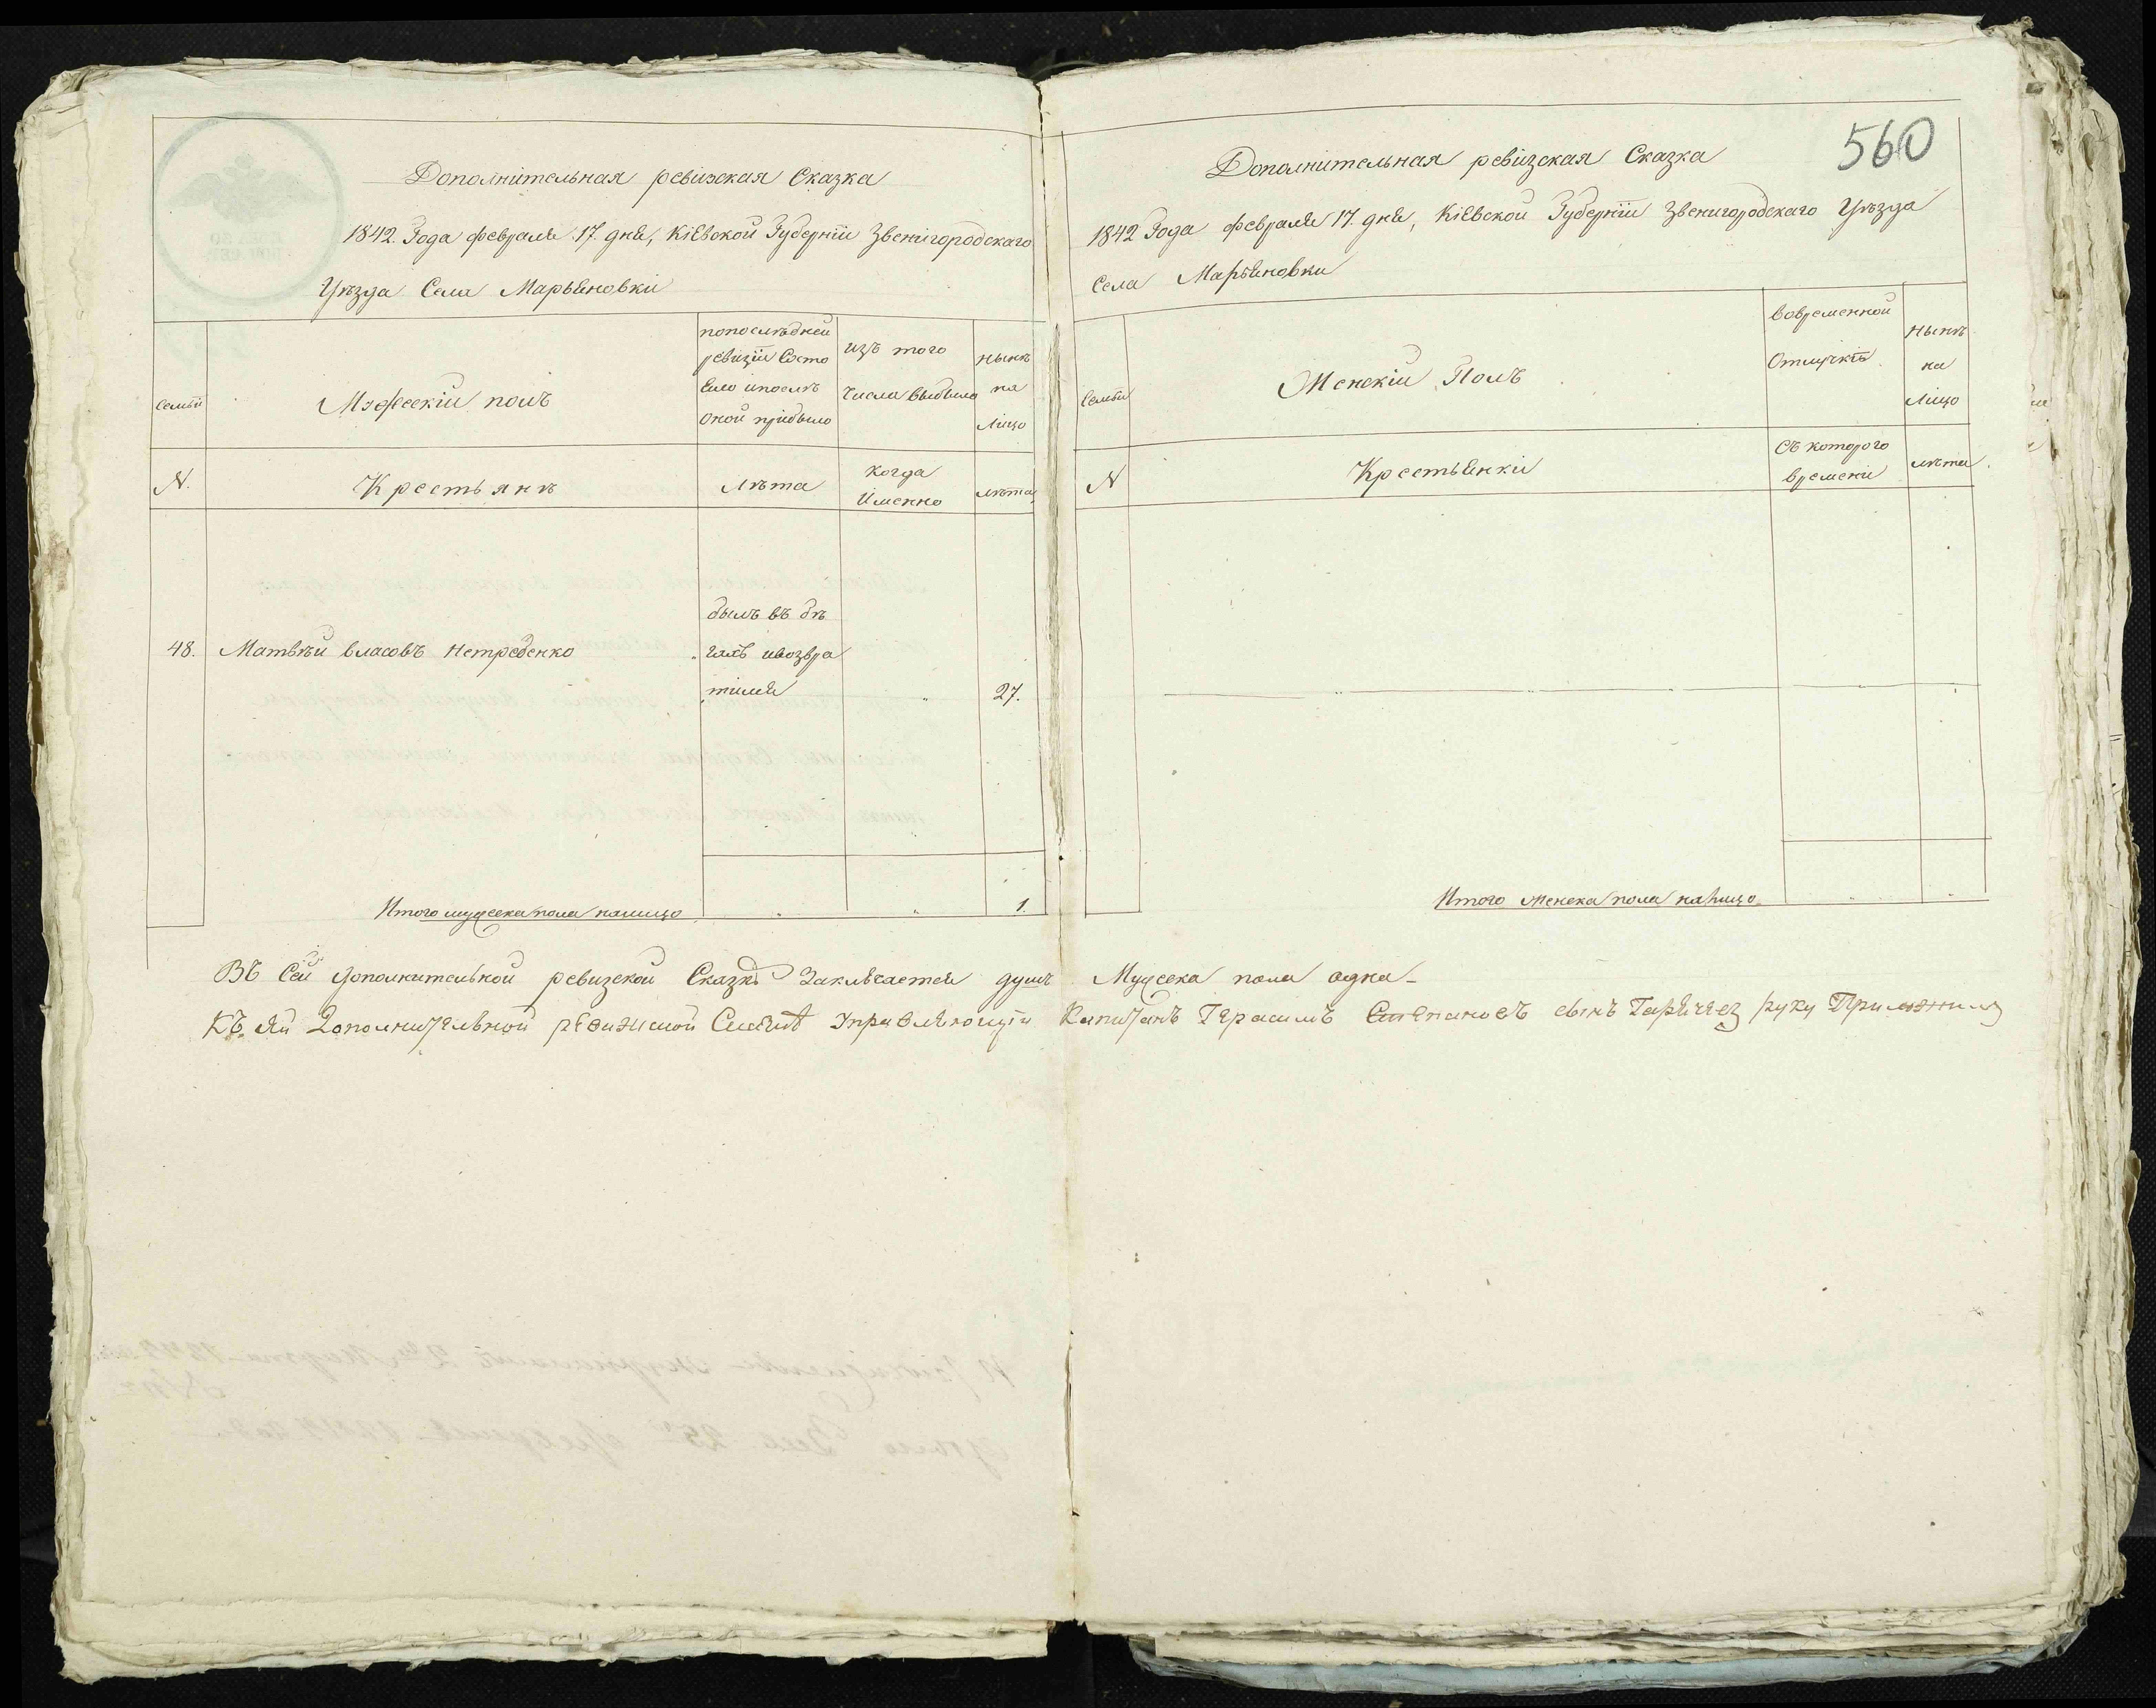 Дополнительная ревизская Сказка
1842. Года февраля 17. дня, Кіевской Губерніи Звенигородскаго
Уѣзда Села Марьяновки
Семьи
Мужескій полъ
по последней
ревизіи Состо
яло и послѣ
оной прибыло
изъ того
числа выбыло
нынѣ
на
лицо
N.
Крестьянѣ
лѣта
когда
Именно
лѣта
48. Матвѣй власовъ Нетребенко
былъ въ бѣ
гахъ и возвра
тился
27.
Итого мужеска пола налицо
1.
Дополнительная ревизская Сказка
560
1842 Года февраля 17. дня, Кіевской Губерніи Звенигородскаго Уѣзда
Села Марьяновки
Семьи
Женскій Полъ
во временной
Отлучкѣ
нынѣ
на
лицо
N
Крестьянки
Съ которого
времени
лѣта
Итого женска пола на лицо
Въ Сей дополнительной ревизской Сказкѣ Заключается душъ Мужеска пола одна
Къ сей Дополнительной ревизской Сказкѣ Управляющій Капитанъ Герасимъ Степановъ сынъ руку Приложилъ